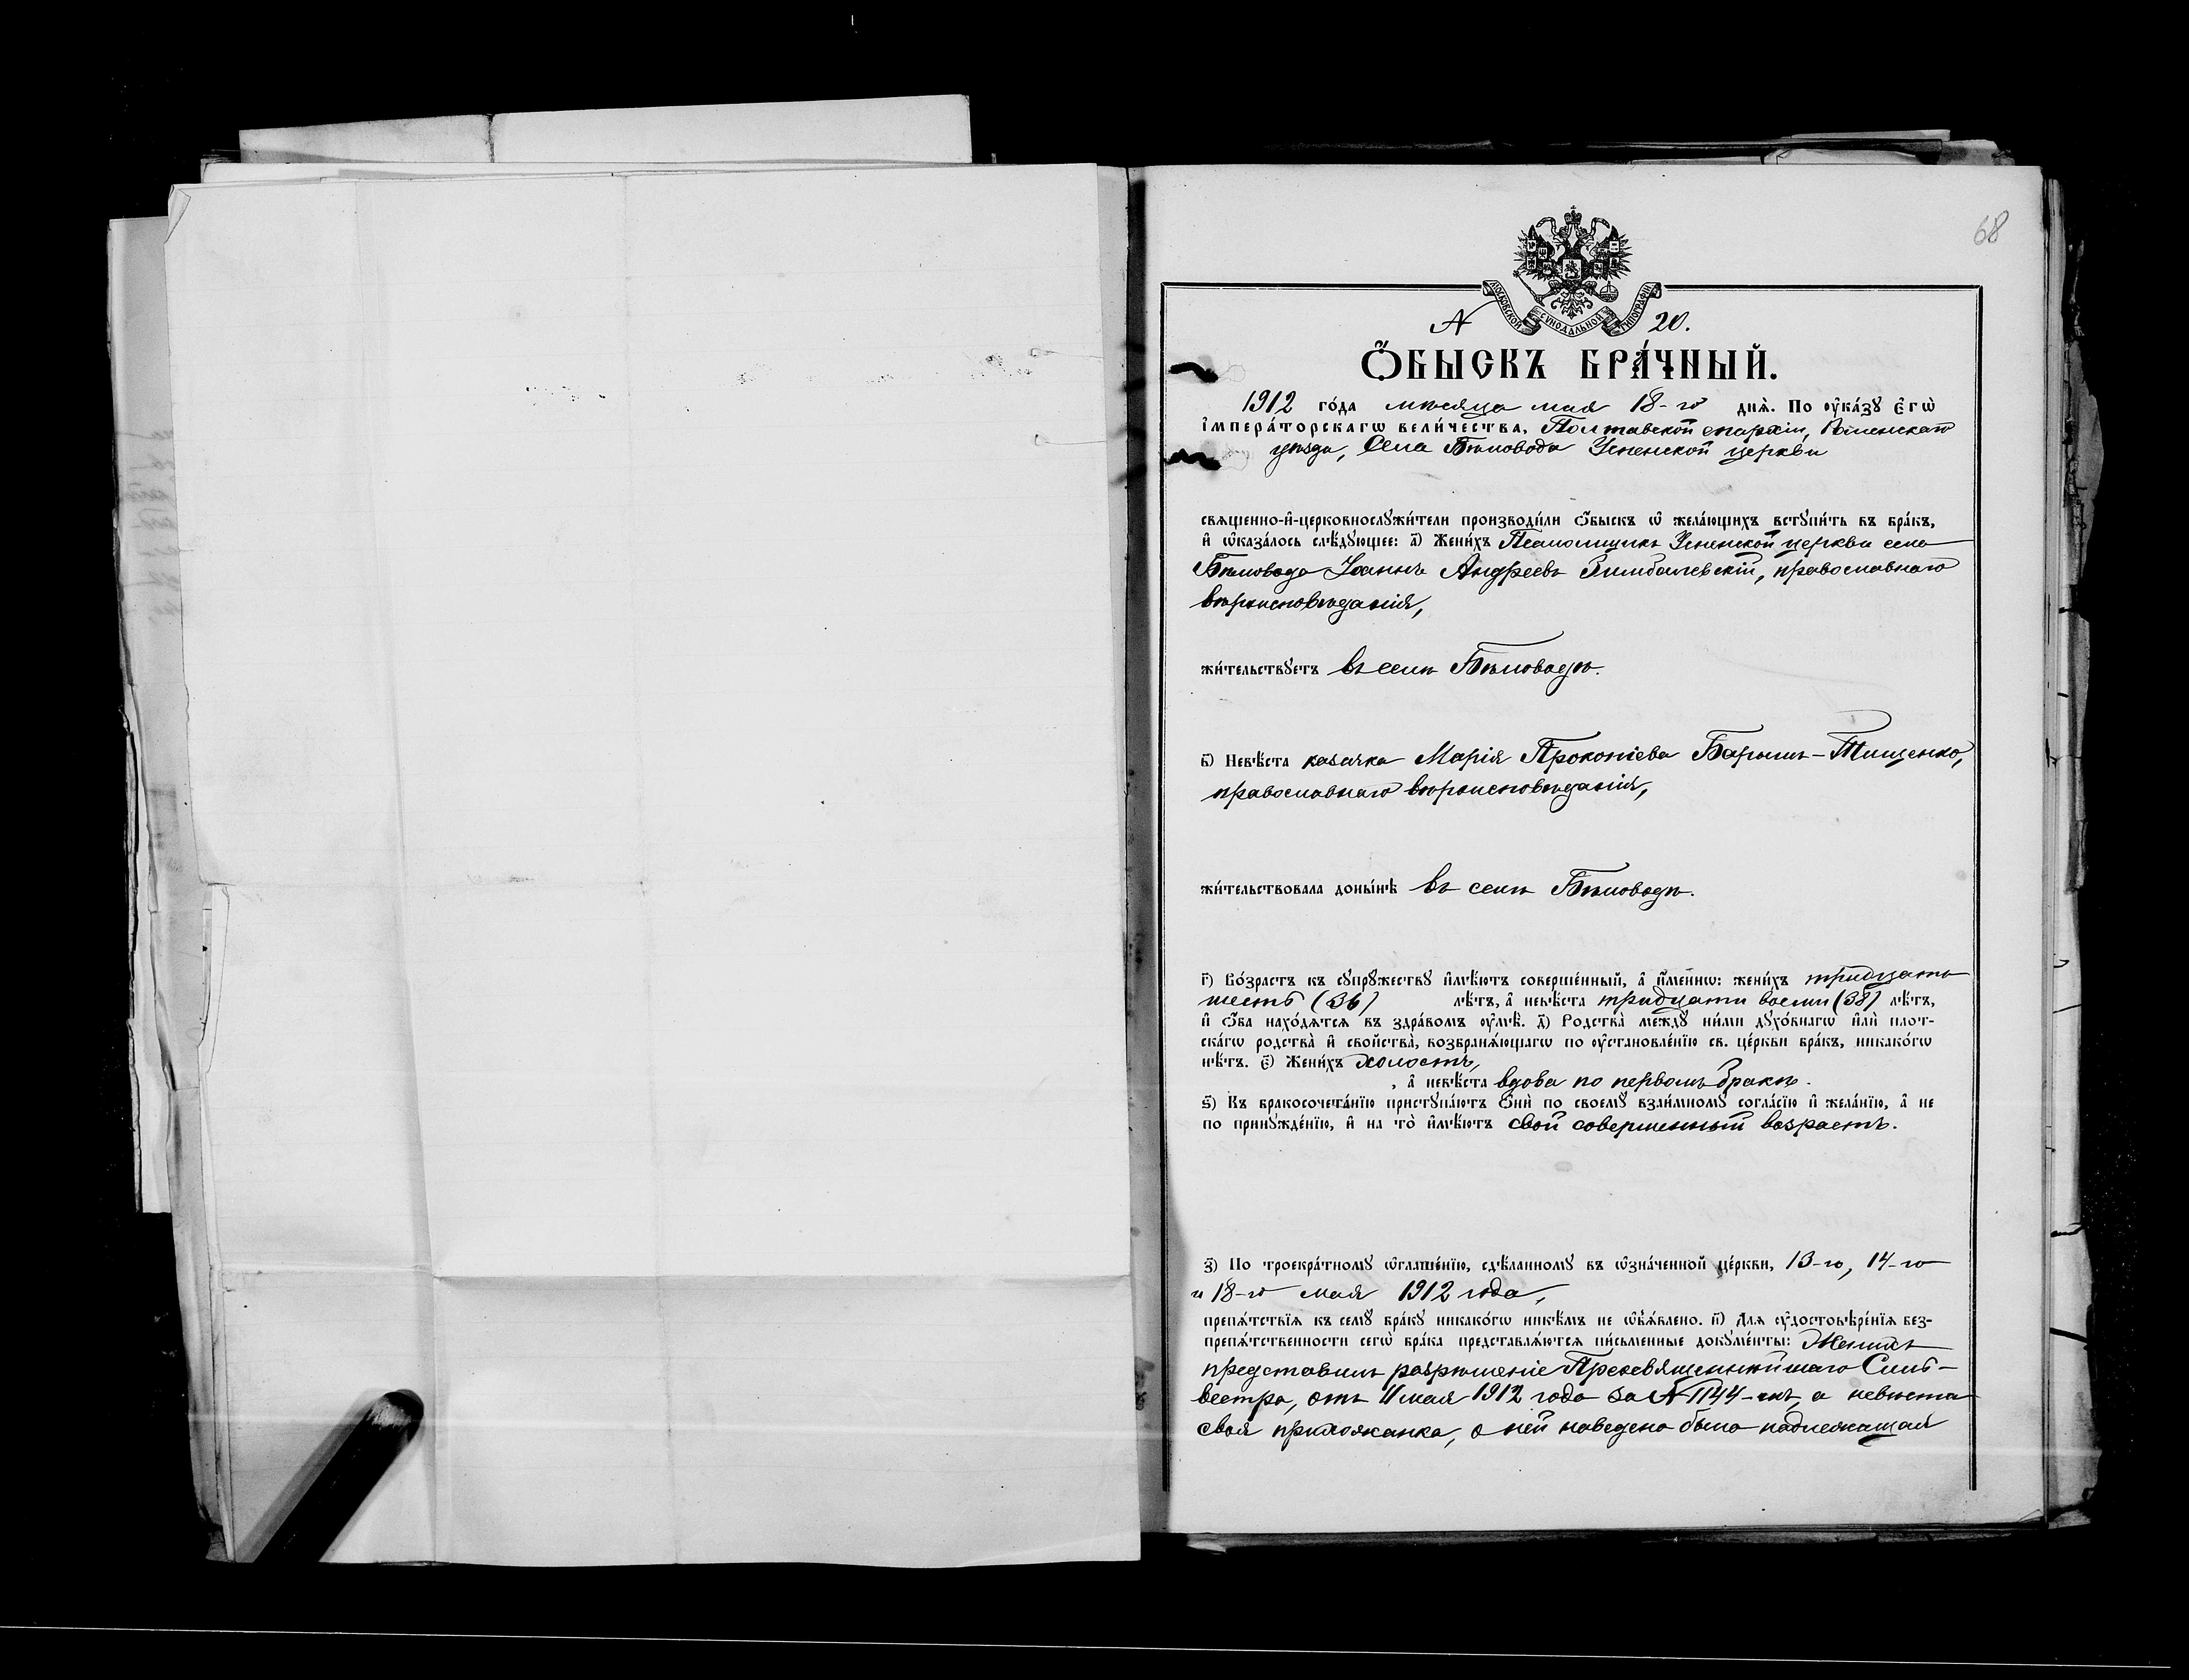 68
МОСКОВСКОЙ СѴНОДАЛЬНОЙ ТИПОГРАФІИ
№ 20.
Ѻ҆́БЫСКЪ БРА́ЧНЫЙ.
1912 го́да мѣсяца мая 18-го днѧ̀. По ᲂу҆ка́зꙋ Є҆гѡ̀
І҆мпера́торскагѡ вели́чества, Полтавской епархіи, Роменскаго
уѣзда, Села Бѣловода Успенской церкви
свѧще́нно-и҆-церковнослꙋжи́тели производи́ли ѻ҆́быскъ ѡ҆ жела́ющихъ встꙋпи́ть въ бра́къ,
и҆ ѡ҆каза́лось слѣ́дꙋющее: а҃) Жени́хъ Псаломщикъ Успенской церкви села
Бѣловода Іоаннъ Андреевъ Симбалевскій, православнаго
вѣроисповѣданія,
жи́тельствꙋетъ въ селѣ Бѣловодѣ.
в҃) Невѣ́ста казачка Марія Прокопіева Барышъ-Тищенко,
православнаго вѣроисповѣданія,
жи́тельствовала доны́нѣ въ селѣ Бѣловодѣ.
г҃) Во́зрастъ къ сꙋпрꙋ́жествꙋ и҆мѣ́ютъ соверше́нный, а҆ и҆́меннѡ: жени́хъ тридцать
шесть (36) лѣ́тъ, а҆ невѣ́ста тридцати восьми (38) лѣ́тъ,
и҆ ѻ҆́ба нахо́дѧтсѧ въ здра́вомъ ᲂу҆мѣ̀. д҃) Родства̀ междꙋ̀ ни́ми дꙋхо́внагѡ и҆лѝ плот-
ска́гѡ родства̀ и҆ свойства̀, возбранѧ́ющагѡ по ᲂу҆становле́нїю св. це́ркви бра́къ, никако́гѡ
нѣ́тъ. є҃) Жени́хъ холостъ,
, а҆ невѣ́ста вдова по первомъ бракѣ.
ѕ҃) Къ бракосочета́нїю пристꙋпа́ютъ ѻ҆нѝ по своемꙋ̀ взаи́мномꙋ согла́сїю и҆ жела́нїю, а҆ не
по принꙋжде́нїю, и҆ на то̀ и҆мѣ́ютъ свой совершенный возрастъ.
з҃) По троекра́тномꙋ ѡ҆глаше́нїю, сдѣ́ланномꙋ въ ѡ҆зна́ченной це́ркви, 13-го, 14-го
и 18-го мая 1912 года,
препѧ́тствїѧ къ семꙋ̀ бра́кꙋ никако́гѡ никѣ́мъ не ѡ҆б̾ѧ́влено. и҃) Длѧ ᲂу҆достовѣре́нїѧ без-
препѧ́тственности сегѡ̀ бра́ка представлѧ́ютсѧ пи́сьменные докꙋме́нты: Женихъ
представилъ разрѣшеніе Преосвященнѣйшаго Силь-
вестра, отъ 11 мая 1912 года за № 1144-мъ, а невѣста
своя прихожанка, о ней наведена была надлежащая